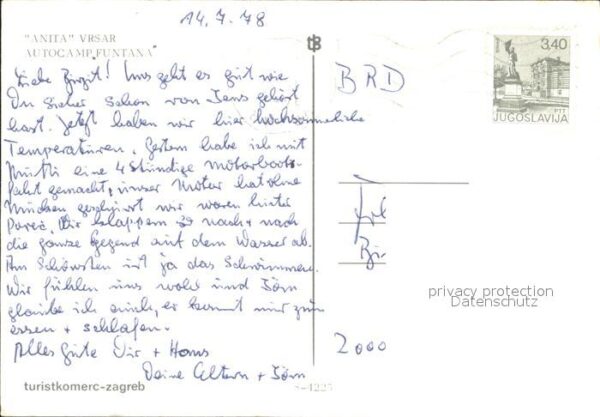 14.7.78
"ANITA" VRSAR
AUTOCAMP "FUNTANA"
tB
3,40
PTT
JUGOSLAVIJA
BRD
Liebe Birgit! Uns geht es gut wie
Du sicher schon von Jens gehört
hast. Jetzt haben wir hier hochsommerliche
Temperaturen. Gestern habe ich mit
Mutti eine 4 stündige Motorboots-
fahrt gemacht, unser Motor hat ohne
Mucken geschnurrt wir waren hinter
Poreč. Wir klappern so nach + nach
die ganze Gegend auf dem Wasser ab.
Am Schönsten ist ja das Schwimmen.
Wir fühlen uns wohl und Jörn
glaube ich auch, er kommt nur zum
essen + schlafen.
Alles Gute Dir + Hans
Deine Eltern + Jörn
Bir
privacy protection
Datenschutz
2000
turistkomerc-zagreb
S-4225